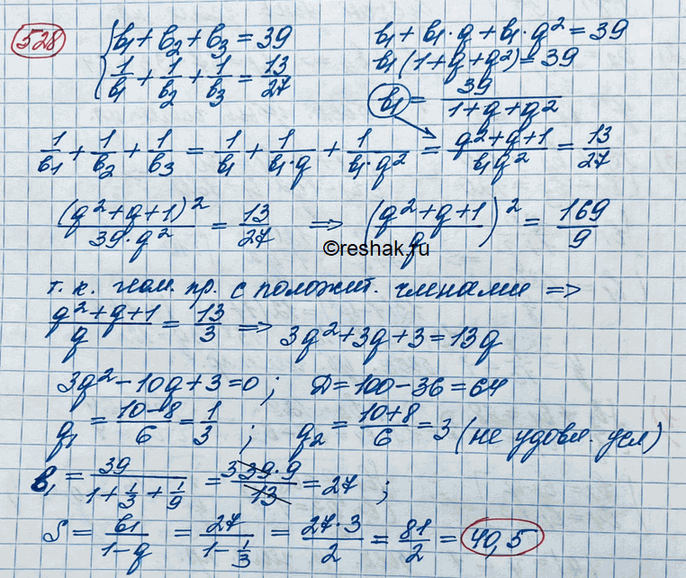 528 { b₁ + b₂ + b₃ = 39    b₁ + b₁·q + b₁·q² = 39
1/b₁ + 1/b₂ + 1/b₃ = 13/27    b₁(1+q+q²) = 39
b₁ = 39/(1+q+q²)
1/b₁ + 1/b₂ + 1/b₃ = 1/b₁ + 1/(b₁·q) + 1/(b₁·q²) = (q²+q+1)/(b₁q²) = 13/27
(q²+q+1)²/(39·q²) = 13/27 ⇒ ((q²+q+1)/q)² = 169/9
©reshak.ru
т. к. геом. пр. с положит. членами ⇒
(q²+q+1)/q = 13/3 ⇒ 3q²+3q+3 = 13q
3q²-10q+3=0; Д=100-36=64
q₁ = (10-8)/6 = 1/3; q₂ = (10+8)/6 = 3 (не удовл. усл)
b₁ = 39/(1+1/3+1/9) = 3 39·9/13 = 27;
S = b₁/(1-q) = 27/(1-1/3) = 27·3/2 = 81/2 = 40,5